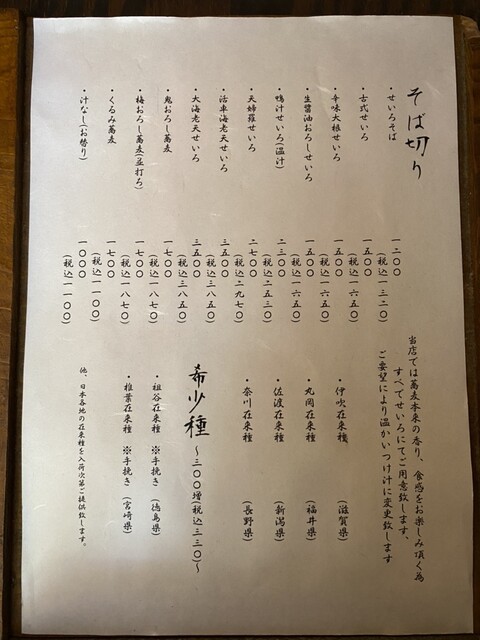 そば切り
・せいろそば 一二〇〇
(税込一三二〇)
・古式せいろ 一五〇〇
(税込一六五〇)
・辛味大根せいろ 一五〇〇
(税込一六五〇)
・生醤油おろしせいろ 一五〇〇
(税込一六五〇)
・鴨汁せいろ(温汁) 二三〇〇
(税込二五三〇)
・天婦羅せいろ 二七〇〇
(税込二九七〇)
・活車海老天せいろ 三五〇〇
(税込三八五〇)
・大海老天せいろ 三五〇〇
(税込三八五〇)
・鬼おろし蕎麦 一七〇〇
(税込一八七〇)
・梅おろし蕎麦 一七〇〇
(税込一八七〇)
・くるみ蕎麦 一七〇〇
(税込一一〇〇)
・汁なし(お替り) 一〇〇〇
(税込一一〇〇)
当店では蕎麦本来の香り、食感をお楽しみ頂く為
すべてせいろにてご用意致します、
ご要望により温かいつけ汁に変更致します
・伊吹在来種 (滋賀県)
・丸岡在来種 (福井県)
・佐渡在来種 (新潟県)
・奈川在来種 (長野県)
希少種 ~三〇〇増(税込三三〇)~
・祖谷在来種 ※手挽き (徳島県)
・椎葉在来種 ※手挽き (宮崎県)
他、日本各地の在来種を入荷次第ご提供致します。